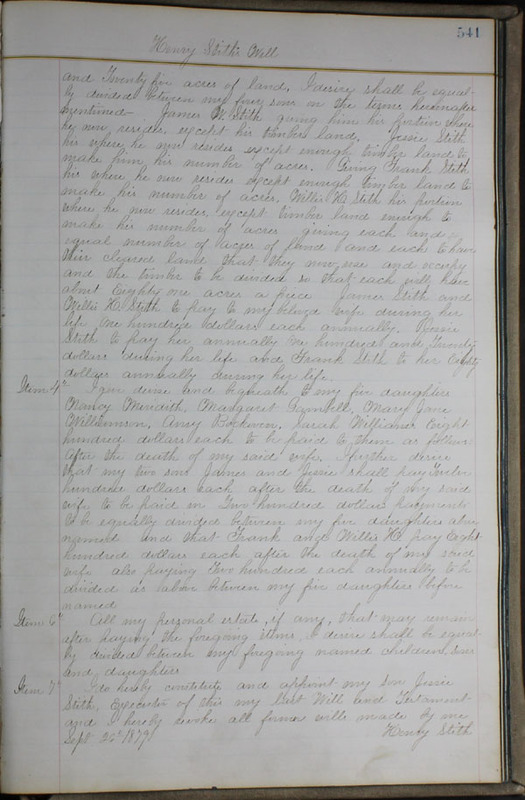 541
Henry Stith's Will
and Twenty five acres of land, I desire shall be equal-
ly divided between my four sons in the terms hereinafter
mentioned - James M. Stith giving him his portion where
he now resides, except his timber land, Jessie Stith
his where he now resides except enough timber land to
make him his number of acres. Giving Frank Stith
his where he now resides except enough timber land to
make his number of acres, Willis H. Stith his portion
where he now resides, except timber land enough to
make his number of acres giving each and
equal number of acres of land and each to have
their cleared land that they now use and occupy
and the timber to be divided so that each will have
about Eighty one acres a piece James Stith and
Willis H. Stith to pay to my beloved wife during her
life one hundred dollars each annually. Jessie
Stith to pay her annually one hundred and Twenty
dollars during her life and Frank Stith to her Eighty
dollars annually during her life.
Item 4th I give devise and bequeath to my five daughters
Nancy Meridith, Margaret Gambill, Mary Jane
Williamson, Amy Sarah Williams Eight
hundred dollars each to be paid to them as follows
after the death of my said wife. I further desire
that my two sons James and Jessie shall pay Twelve
hundred dollars each after the death of my said
wife to be paid in Two hundred dollars payments
to be equally divided between my five daughters above
named and that Frank and Willis H. pay Eight
hundred dollars each after the death of my said
wife also paying Two hundred each annually to be
divided as above between my five daughters before
named
Item 6th All my personal estate, if any, that may remain
after paying the foregoing items, I desire shall be equal-
ly divided between my foregoing named children, sons
and daughters
Item 7th I do hereby constitute and appoint my son Jessie
Stith, Executor of this my last Will and Testament
and I hereby revoke all former wills made by me
Sept 25th 1879 Henry Stith